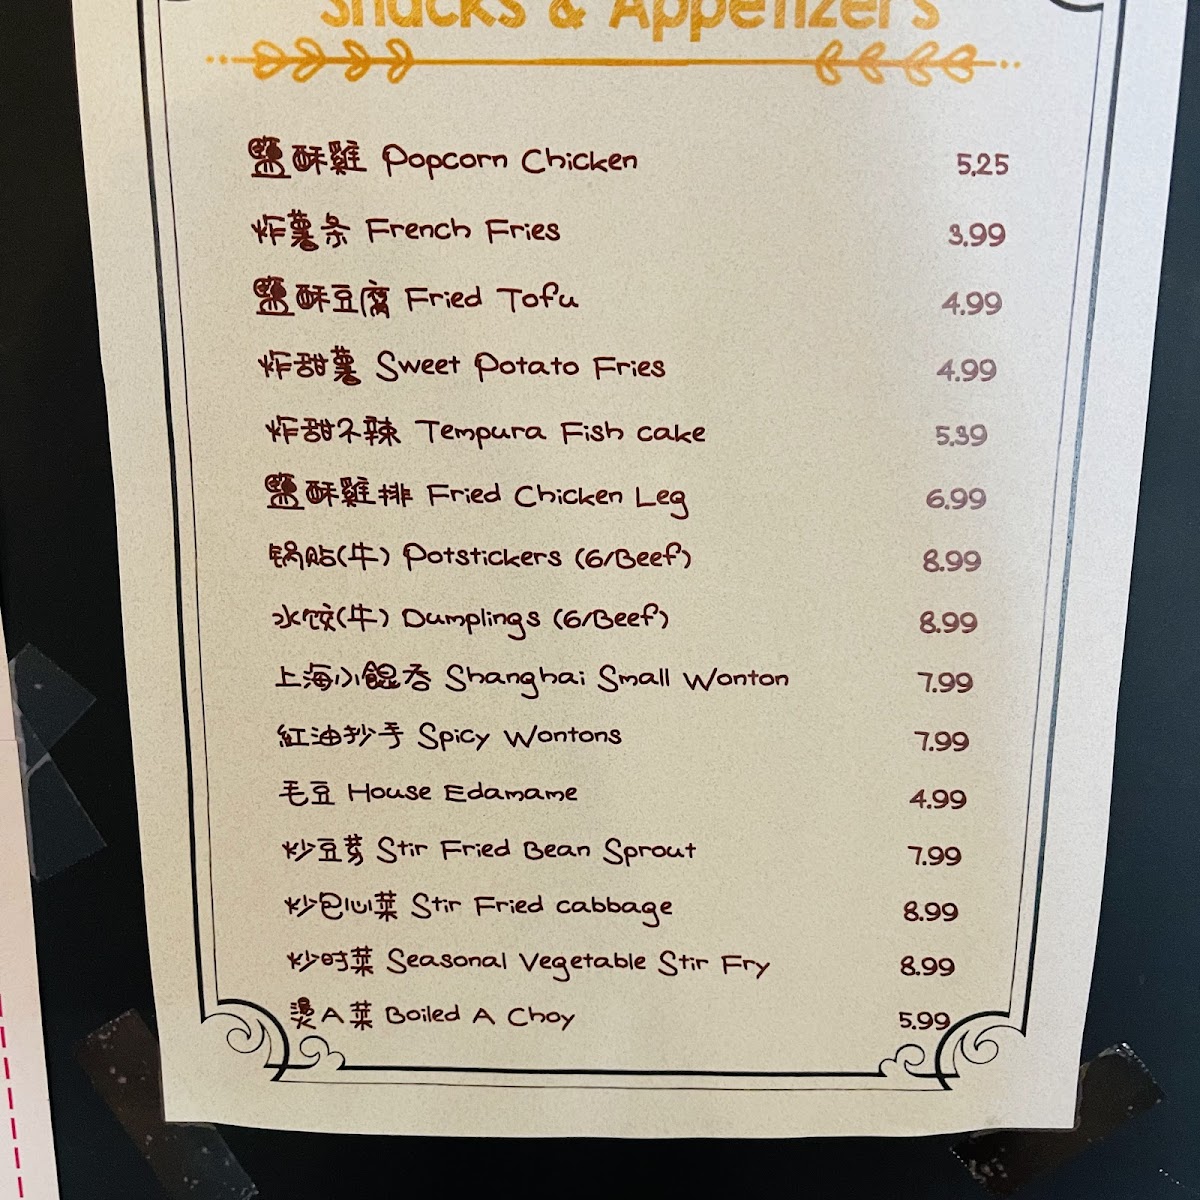 Snacks & Appetizers
鹽酥雞 Popcorn Chicken 5.25
炸薯条 French Fries 3.99
鹽酥豆腐 Fried Tofu 4.99
炸甜薯 Sweet Potato Fries 4.99
炸甜不辣 Tempura Fish cake 5.39
鹽酥雞排 Fried Chicken Leg 6.99
锅贴(牛) Potstickers (6/Beef) 8.99
水饺(牛) Dumplings (6/Beef) 8.99
上海小餛吞 Shanghai Small Wonton 7.99
紅油抄手 Spicy Wontons 7.99
毛豆 House Edamame 4.99
炒豆芽 Stir Fried Bean Sprout 7.99
炒包心菜 Stir Fried cabbage 8.99
炒时菜 Seasonal Vegetable Stir Fry 8.99
燙A菜 Boiled A Choy 5.99